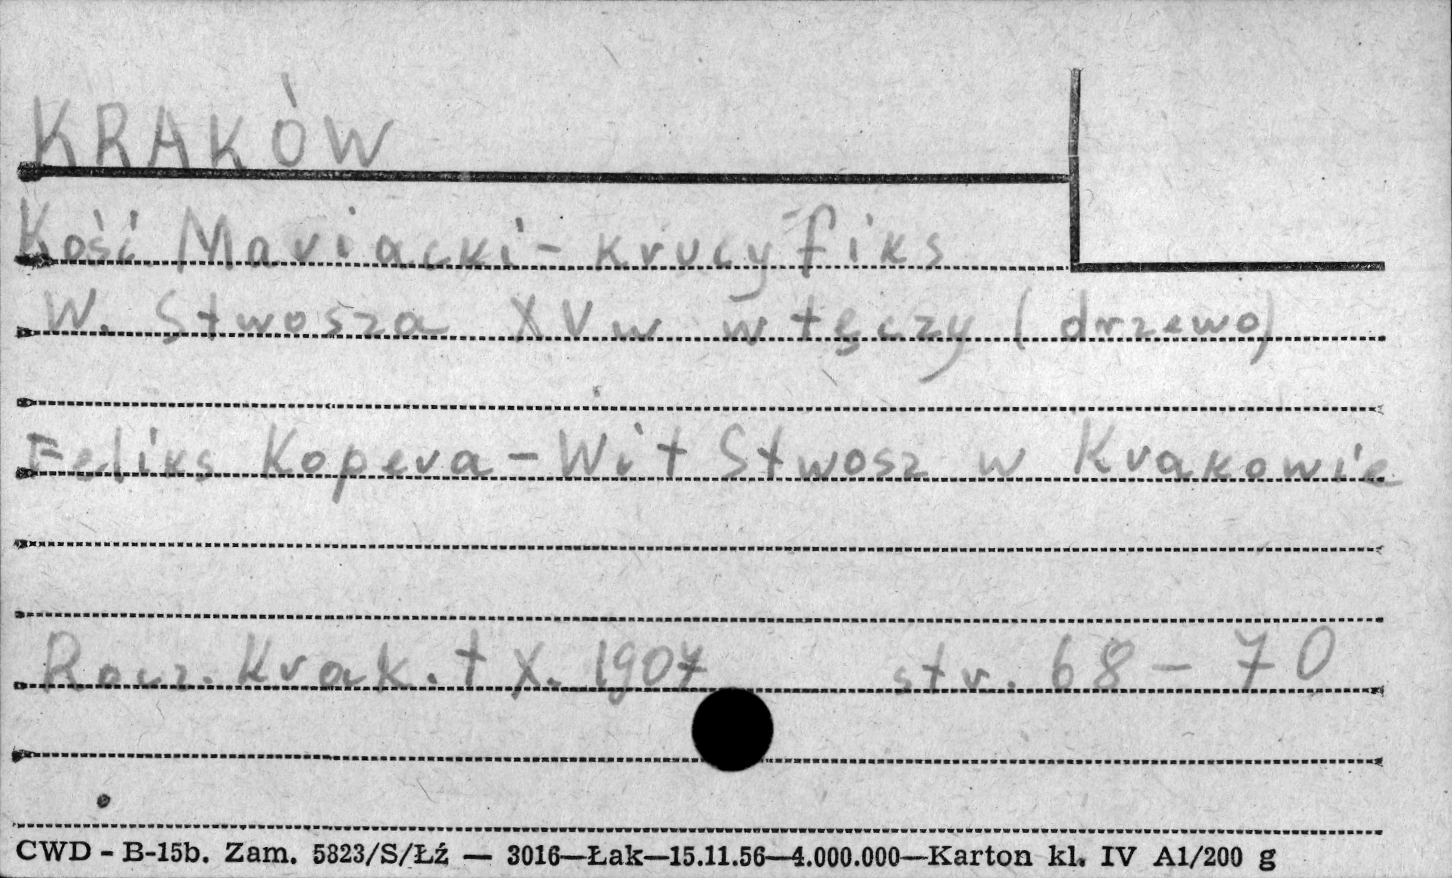 KRAKÓW
Kość Mariacki - krucyfiks
W. Stwosza XV w w tęczy (drzewo)
Feliks Kopera - Wit Stwosz w Krakowie
Rocz. Krak. t X. 1907 str. 68 - 70
CWD - B-15b. Zam. 5823/S/Łź — 3016—Łak—15.11.56—4.000.000—Karton kl. IV A1/200 g